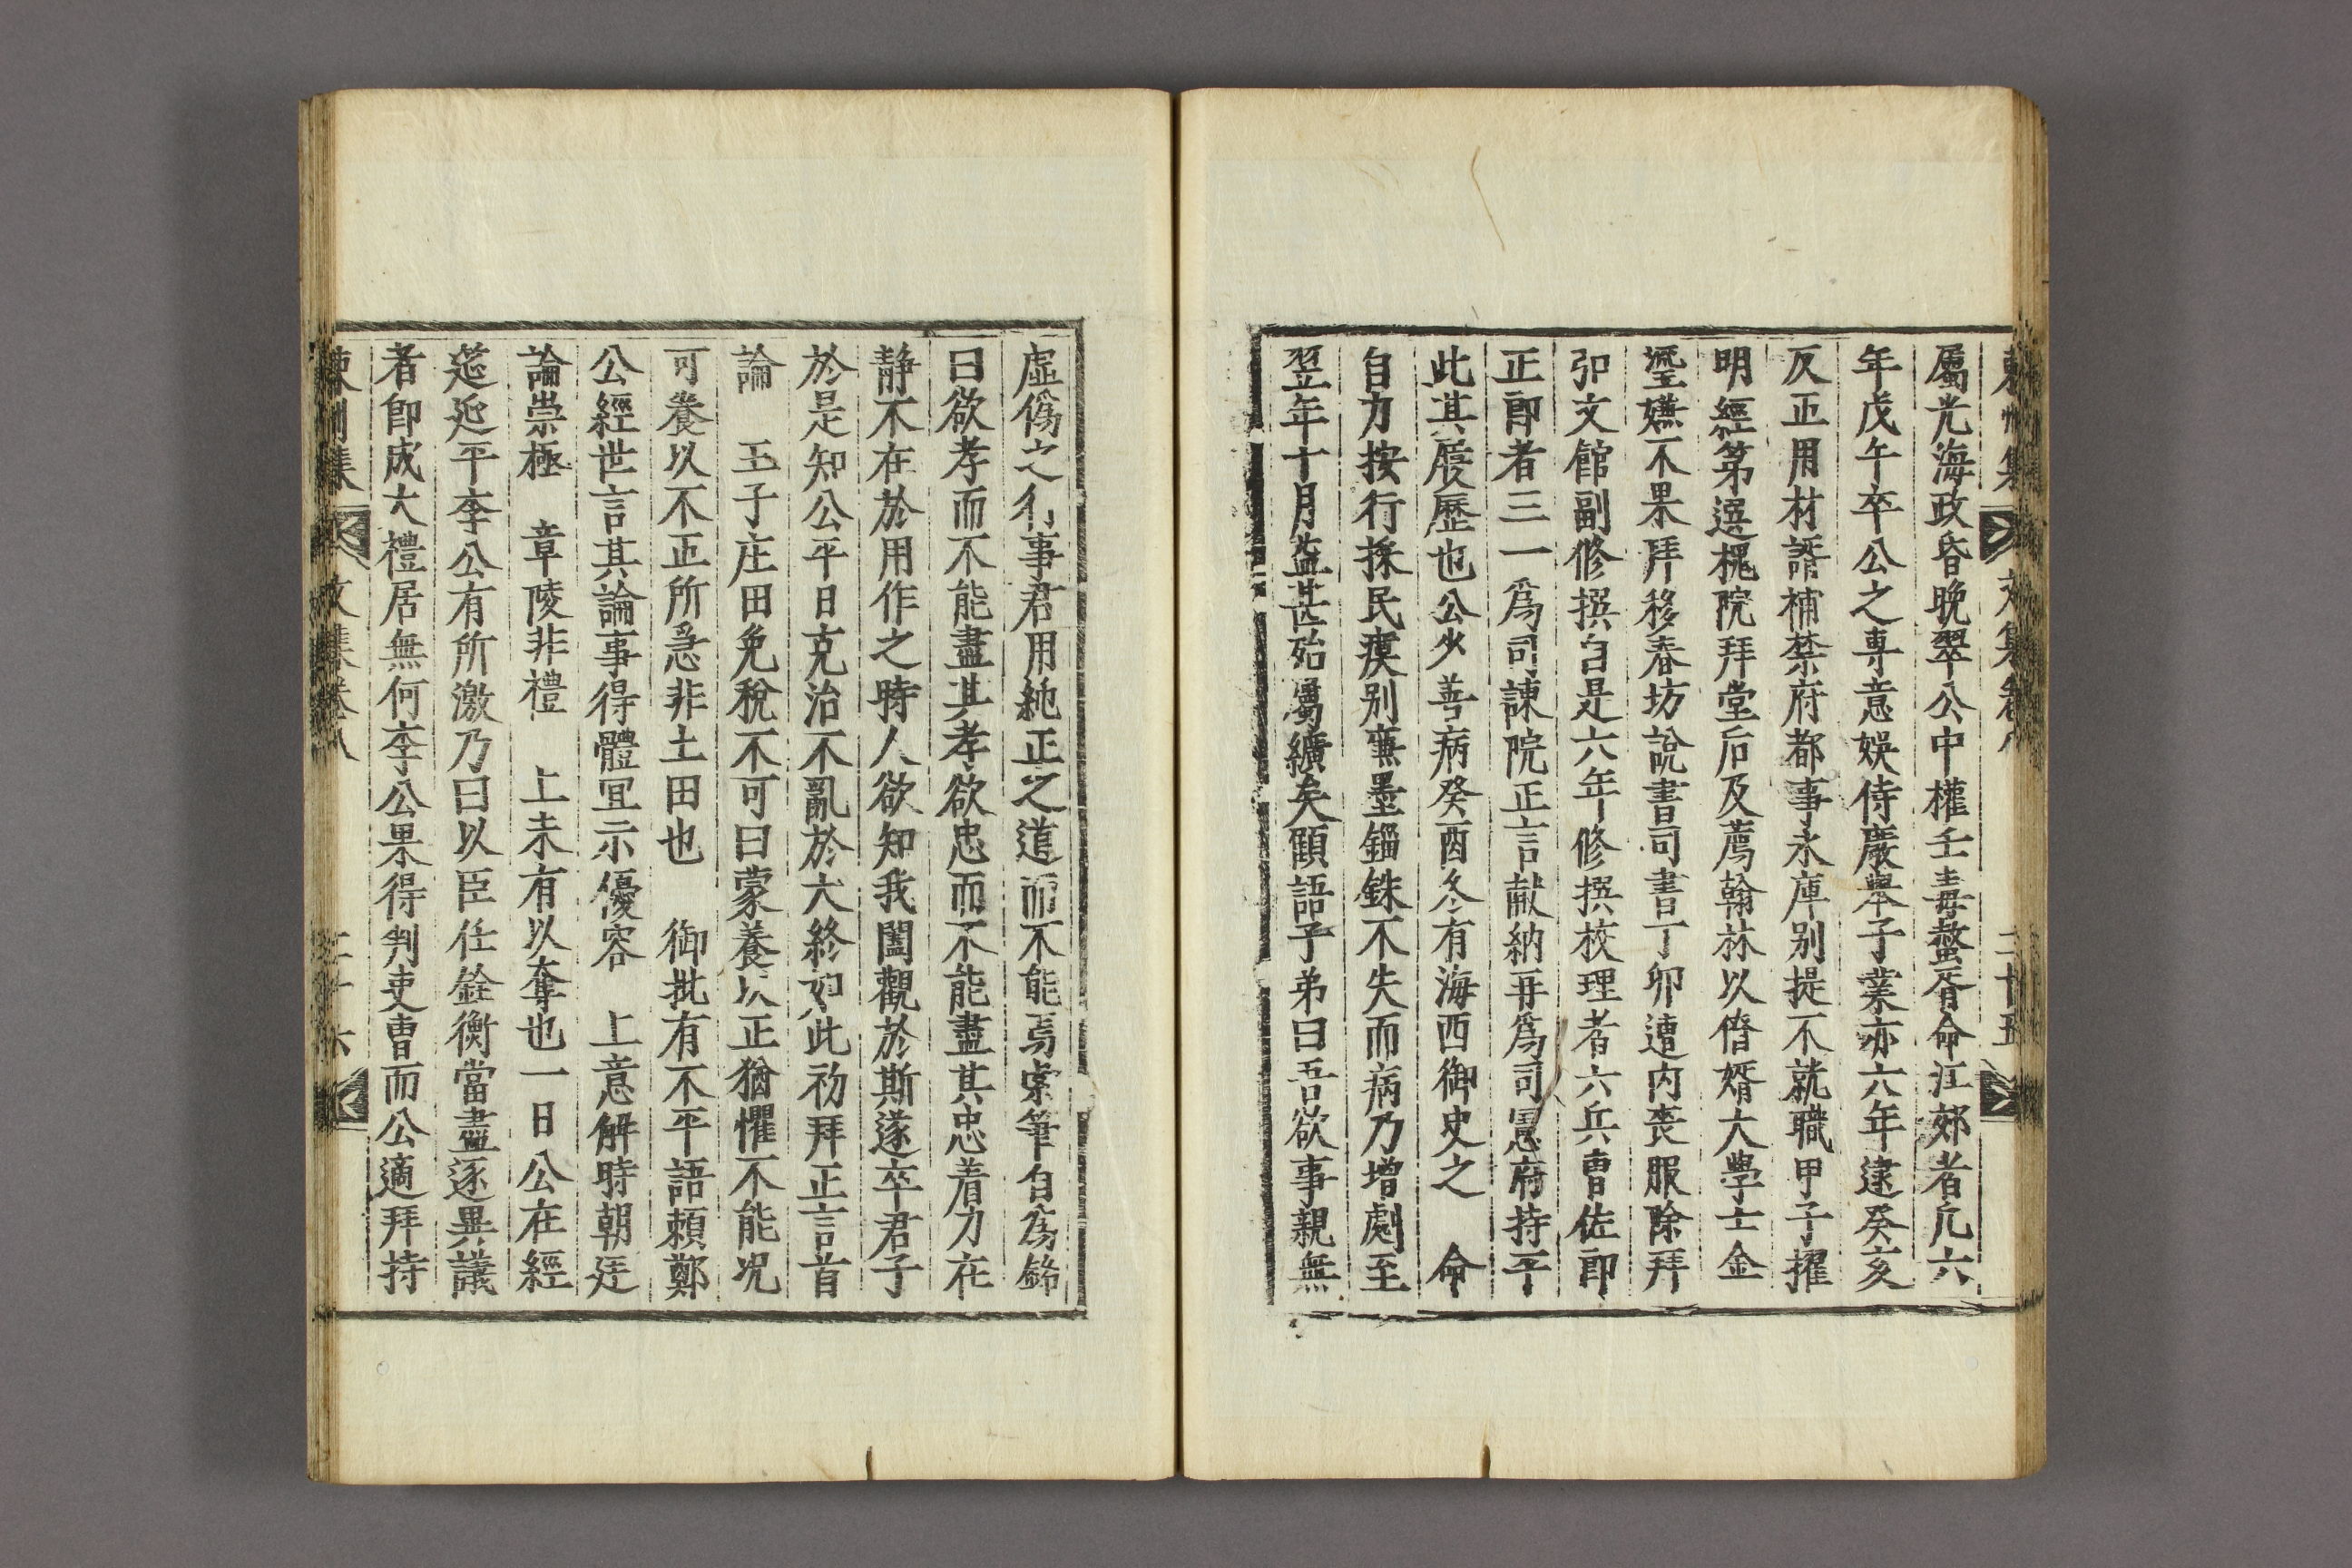 東州集 文集卷八 二十五
屬光海政昏晚翠公中權壬毒螫胥命江郊者凡六
年戊午卒公之專意娛侍廢擧子業亦六年逮癸亥
反正用材諝補禁府都事氷庫别提不就職甲子擢
明經第選槐院拜堂后及薦翰林以偕婿大學士金
瑬嫌不果拜移春坊說書司書丁卯遭内喪服除拜
弘文館副修撰自是六年修撰校理者六兵曹佐郎
正郎者三一爲司諫院正言献納再爲司憲府持平
此其履歷也公少善病癸酉冬有海西御史之 命
自力按行採民瘼别廉墨錙銖不失而病乃增劇至
翌年十月益甚始屬纊矣顧語子弟曰吾欲事親無
虛僞之行事君用純正之道而不能焉索筆自爲銘
曰欲孝而不能盡其孝欲忠而不能盡其忠着力在
靜不在於用作之時人欲知我闔觀於斯遂卒君子
於是知公平日克治不亂於大終如此初拜正言首
論 王子庄田免稅不可曰蒙養以正猶懼不能况
可養以不正所急非土田也 御批有不平語賴鄭
公經世言其論事得體冝示優容 上意解時朝廷
論崇極 章陵非禮 上未有以奪也一日公在經
筵延平李公有所激乃曰以臣任銓衡當盡逐異議
者即成大禮居無何李公果得判吏曹而公適拜持
東州集 文集卷八 二十六